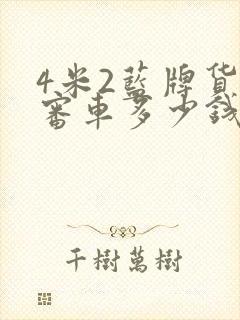 4米2藍牌貨
審車多少錢
千樹萬樹